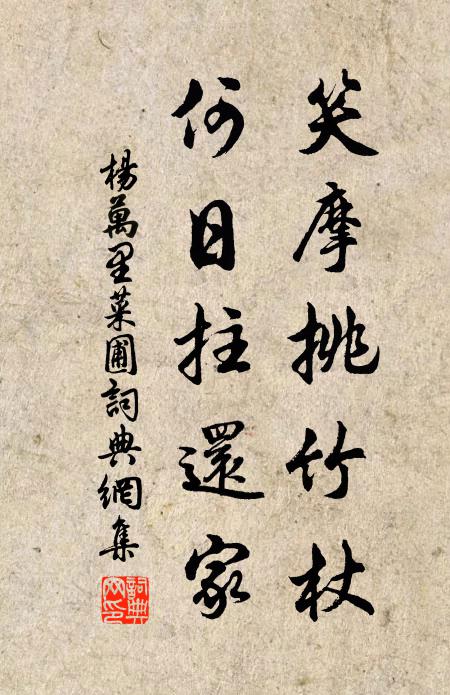 笑摩挑竹杖
何日拄還家
楊萬里菜圃詞典網集
詞典
网印